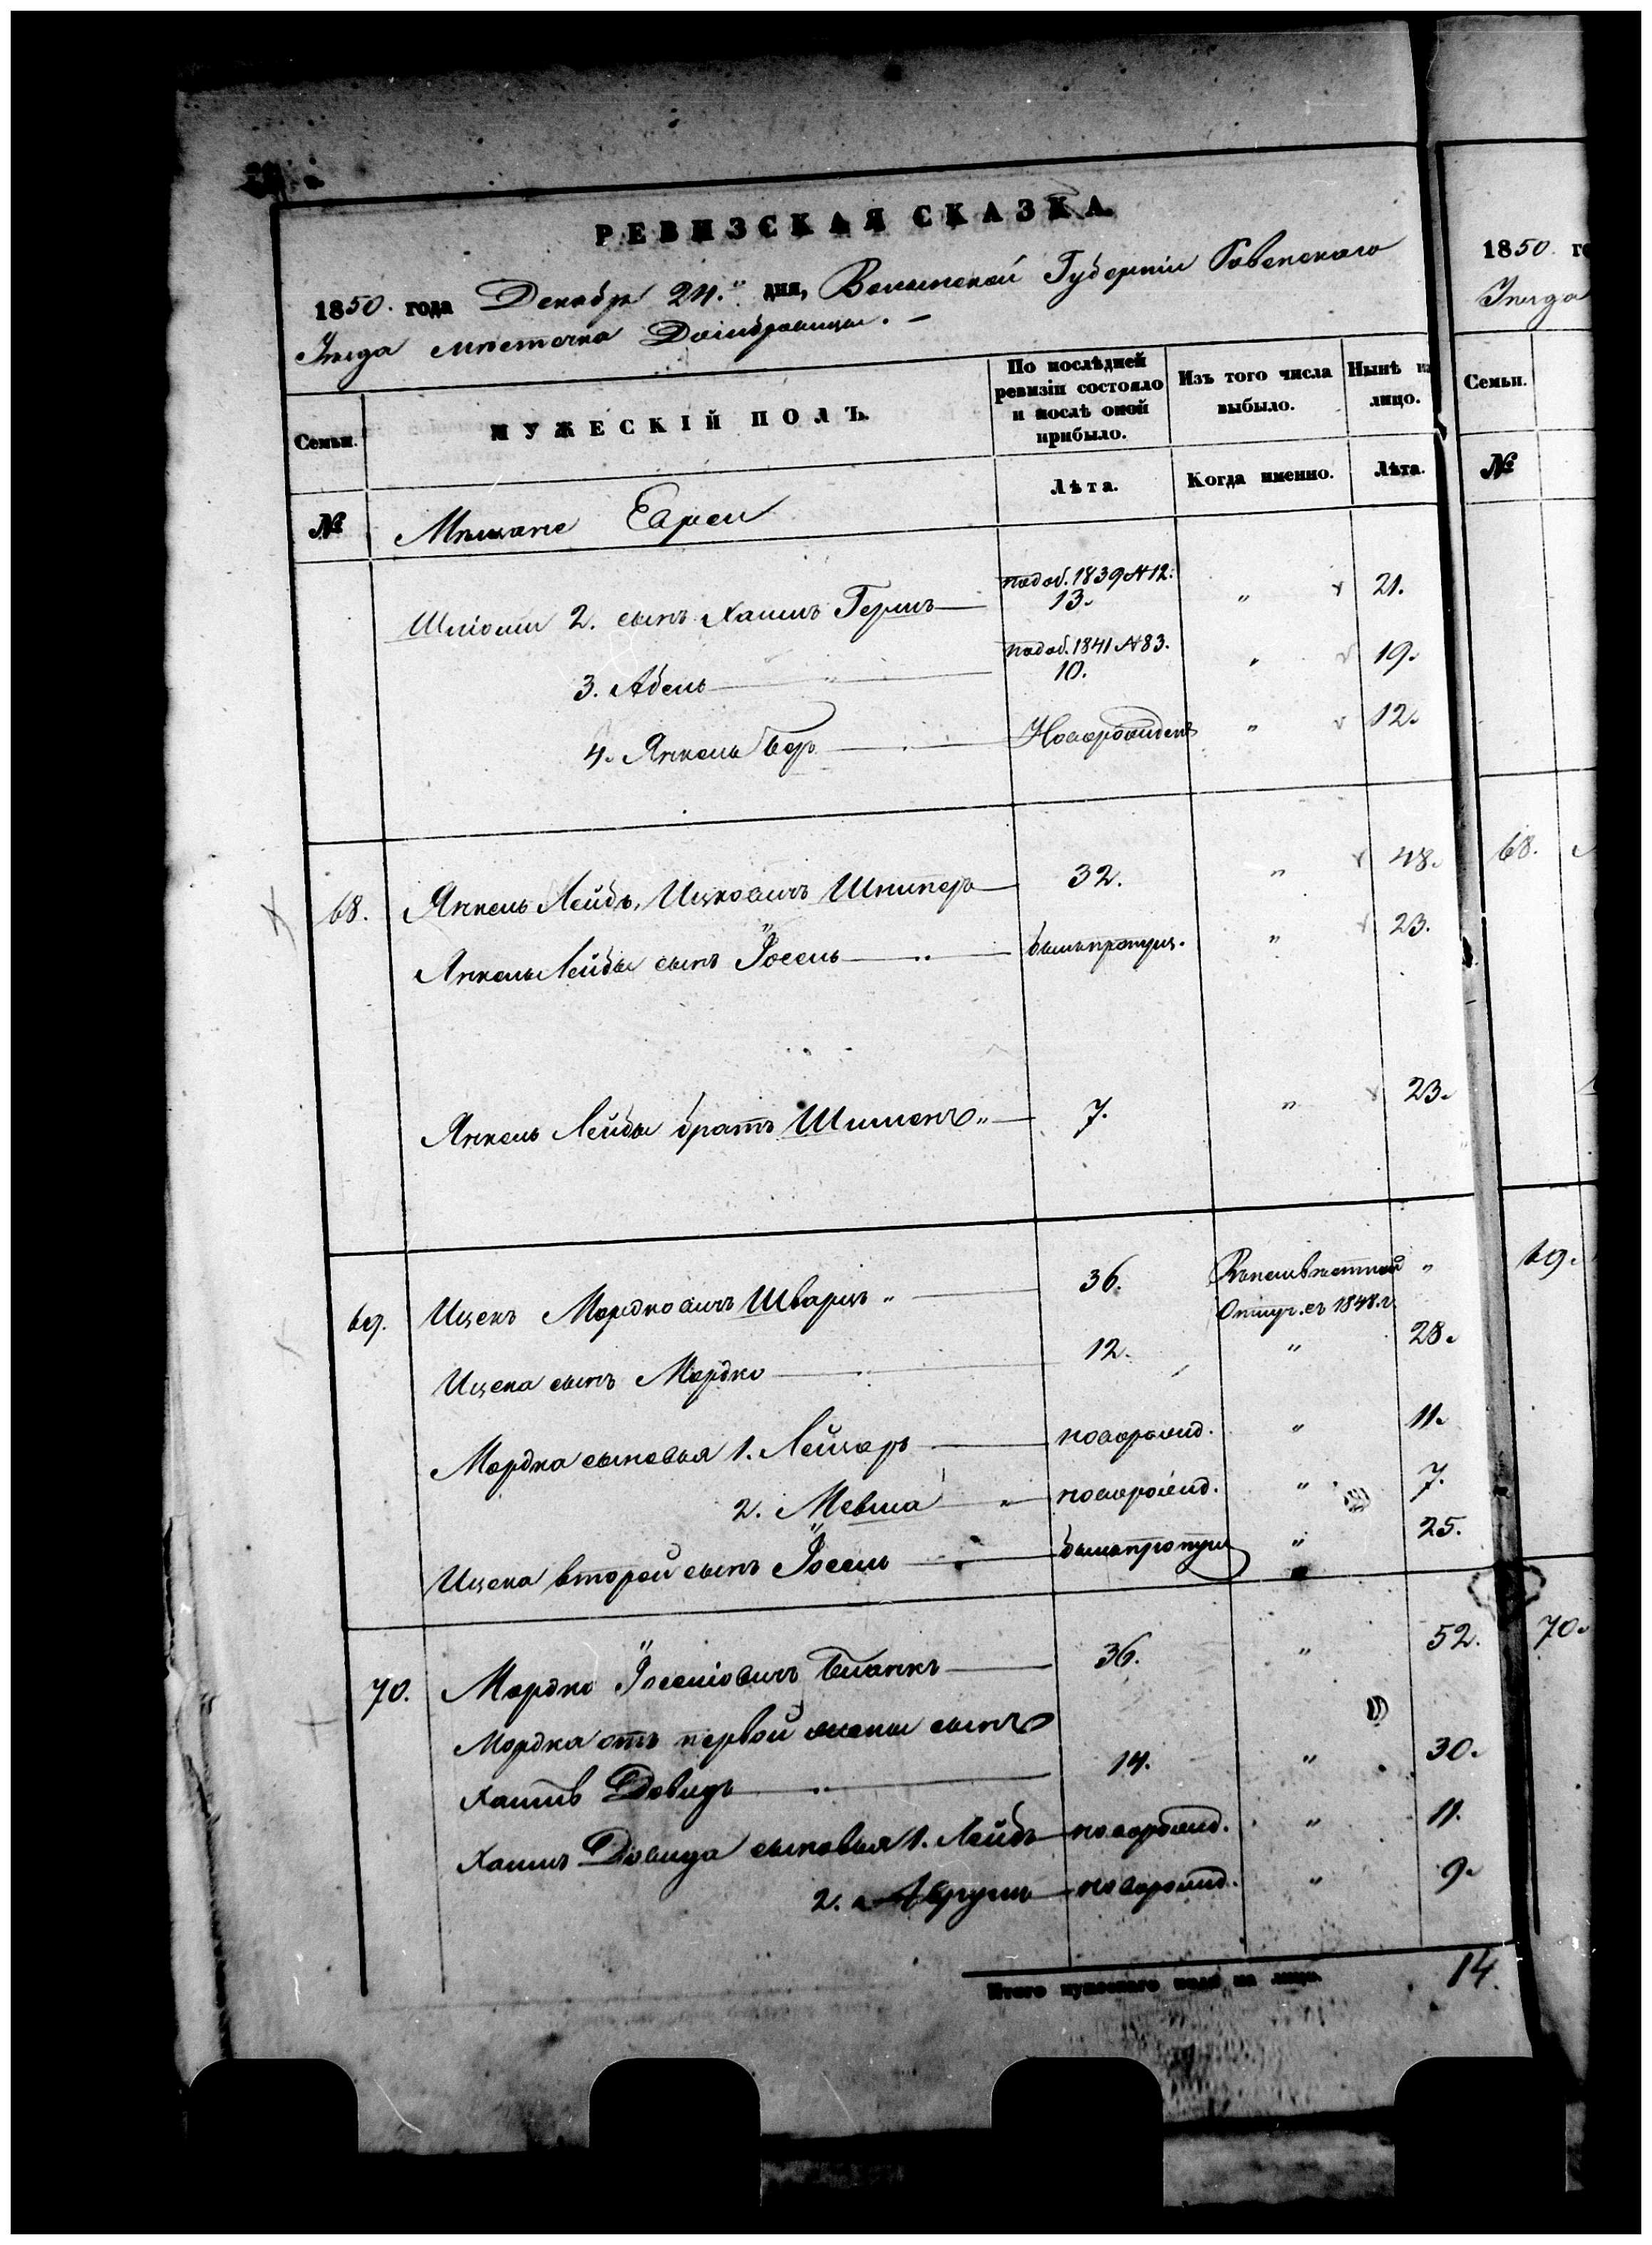 РЕВИЗСКАЯ СКАЗКА
1850 года Декабря 24.го дня, Волынской Губерніи Ровенского
Уѣзда мѣстечка Домбровицы. –
Семьи.
МУЖЕСКІЙ ПОЛЪ.
По послѣдней
ревизіи состояло
и послѣ оной
прибыло.
Изъ того числа
выбыло.
Нынѣ на
лицо.
№
Мѣщане Евреи
Лѣта.
Когда именно.
Лѣта.
2. сынъ Хаимъ Гершъ подоб. 1839 №12: 13. " 21.
3. Абель подоб. 1841 №83. 10. " 19.
4. Янкель Беръ Новорожденъ " 12.
68. Янкель Лейбъ Ицковичъ Шниперъ 32. " 48.
Янкель Лейбы сынъ Іосель былъ пропущ. " 23.
Янкель Лейбы братъ Шименъ 7. " 23.
69. Ицекъ Мордковичъ Шварцъ 36. Въ неизвѣстной "
Отлуч. съ 1848. г.
Ицека сынъ Мордко 12. " 28.
Мордка сыновья 1. Лейзеръ новорожд. " 11.
2. Мевша новорожд. " 7.
Ицека второй сынъ Іосель былъ пропущ " 25.
70. Мордко Іосельовичъ Бланкъ 36. " 52.
Мордка отъ первой жены сынъ
Хаимъ Довидъ 14. " 30.
Хаимъ Довида сыновья 1. Лейбъ новорожд. " 11.
2. Аврумъ новорожд. " 9.
Итого мужескаго пола на лицо. 14.
1850 го
Уѣзда
Семьи.
№
68.
69.
70.